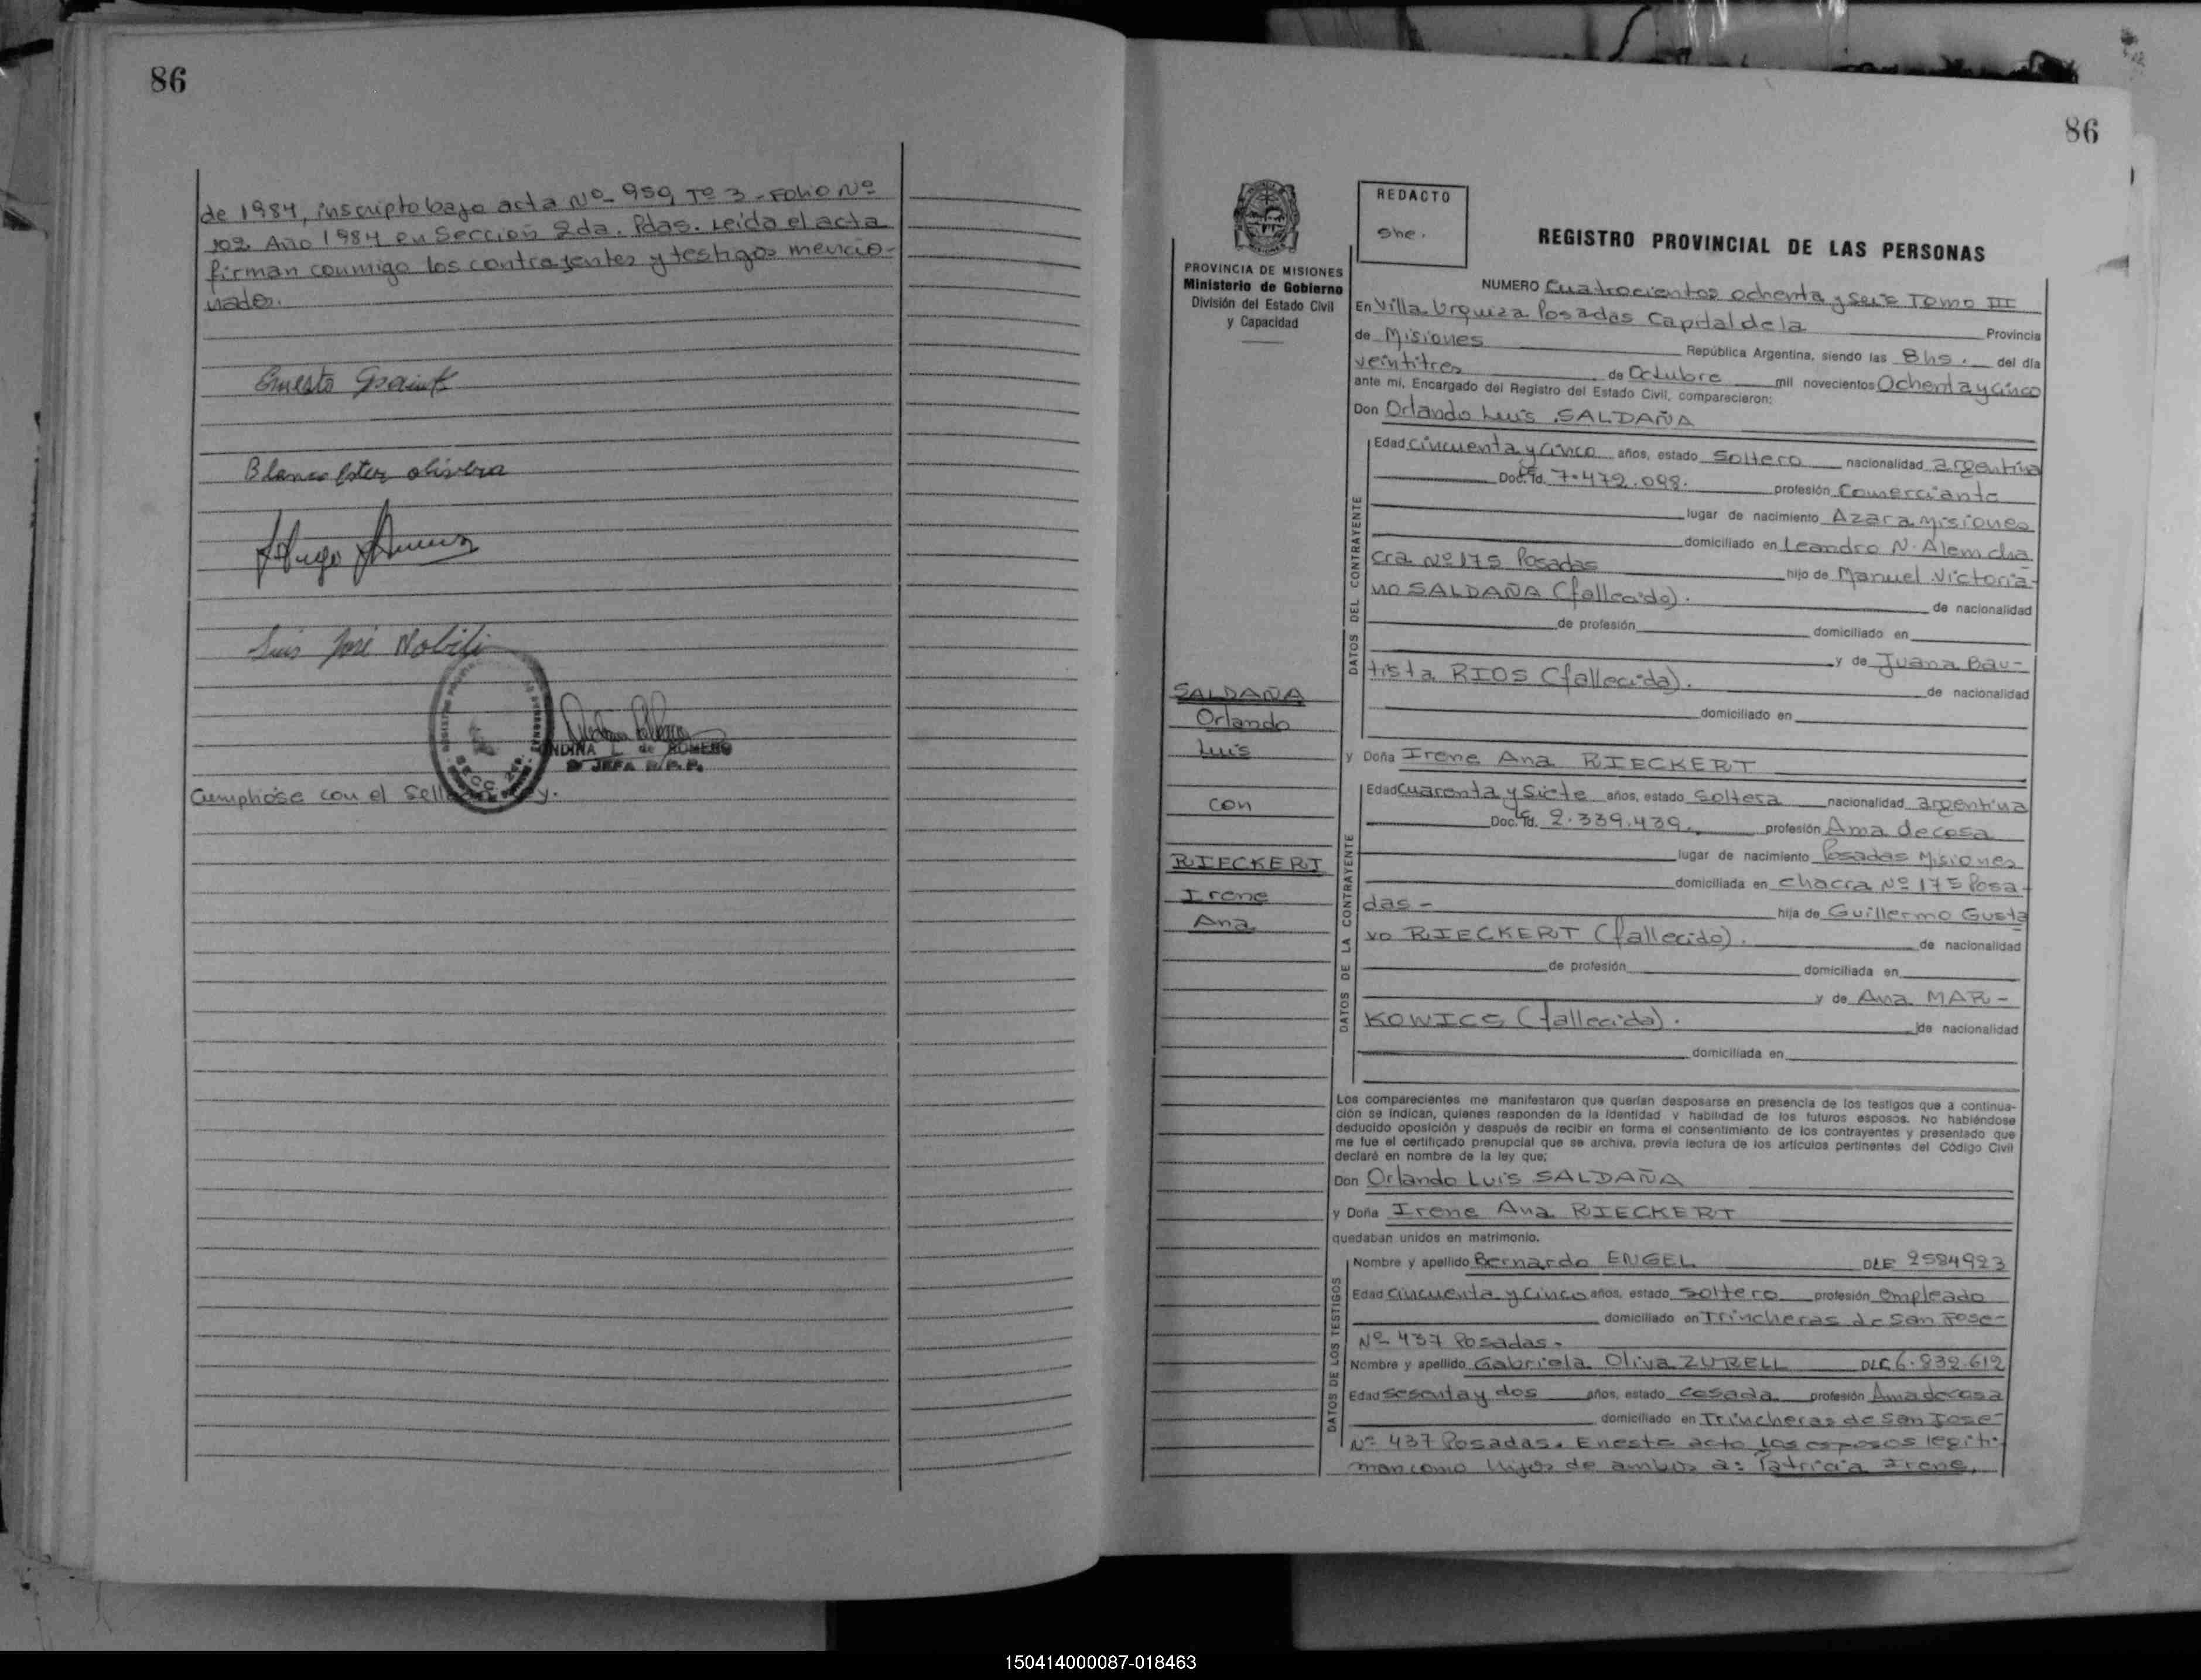 86
de 1984, inscripto bajo acta Nº 959, Tº 3 - Folio Nº
102. Año 1984 en Sección 2da. Pdas. Leída el acta
firman conmigo los contrayentes y testigos mencio-
nados.
Ernesto
Blanca Ester Olivera
Hugo
Luis José Nobili
NDINA L. de ROMERO
JEFA R.P.P.
SECC. 2da.
Cumpliose con el Sell y.
86
REDACTO
She.
REGISTRO PROVINCIAL DE LAS PERSONAS
PROVINCIA DE MISIONES
Ministerio de Gobierno
División del Estado Civil
y Capacidad
NUMERO Cuatrocientos ochenta y seis Tomo III
En Villa Urquiza Posadas Capital de la Provincia
de Misiones República Argentina, siendo las 8 hs. del día
veintitres de Octubre mil novecientos Ochenta y cinco
ante mí, Encargado del Registro del Estado Civil, comparecieron:
Don Orlando Luis SALDAÑA
DATOS DEL CONTRAYENTE
Edad cincuenta y cinco años, estado Soltero nacionalidad argentina
Doc. Id. 7.472.098. profesión Comerciante
lugar de nacimiento Azara Misiones
domiciliado en Leandro N. Alem cha
cra Nº 175 Posadas hijo de Manuel Victoria-
no SALDAÑA (fallecido). de nacionalidad
de profesión domiciliado en
y de Juana Bau-
tista RIOS (fallecida). de nacionalidad
domiciliado en
SALDAÑA
Orlando
Luis
con
RIECKERT
Irene
Ana
y Doña Irene Ana RIECKERT
DATOS DE LA CONTRAYENTE
Edad Cuarenta y Siete años, estado Soltera nacionalidad argentina
Doc. Id. 2.339.439. profesión Ama de casa
lugar de nacimiento Posadas Misiones
domiciliada en chacra Nº 175 Posa-
das- hija de Guillermo Gusta
vo RIECKERT (fallecido). de nacionalidad
de profesión domiciliada en
y de Ana MAR-
KOWICS (fallecida). de nacionalidad
domiciliada en
Los comparecientes me manifestaron que querían desposarse en presencia de los testigos que a continua-
ción se indican, quienes responden de la identidad y habilidad de los futuros esposos. No habiéndose
deducido oposición y después de recibir en forma el consentimiento de los contrayentes y presentado que
me fue el certificado prenupcial que se archiva, previa lectura de los artículos pertinentes del Código Civil
declaré en nombre de la ley que;
Don Orlando Luis SALDAÑA
y Doña Irene Ana RIECKERT
quedaban unidos en matrimonio.
DATOS DE LOS TESTIGOS
Nombre y apellido Bernardo ENGEL DLE 2584923
Edad cincuenta y cinco años, estado soltero profesión empleado
domiciliado en Trincheras de San Jose-
Nº 437 Posadas-
Nombre y apellido Gabriela Oliva ZURELL DLC 6.832.612
Edad sesenta y dos años, estado casada profesión Ama de casa
domiciliado en Trincheras de San Jose-
Nº 437 Posadas. En este acto los esposos legiti-
man como hijos de ambos a: Patricia Irene,
150414000087-018463